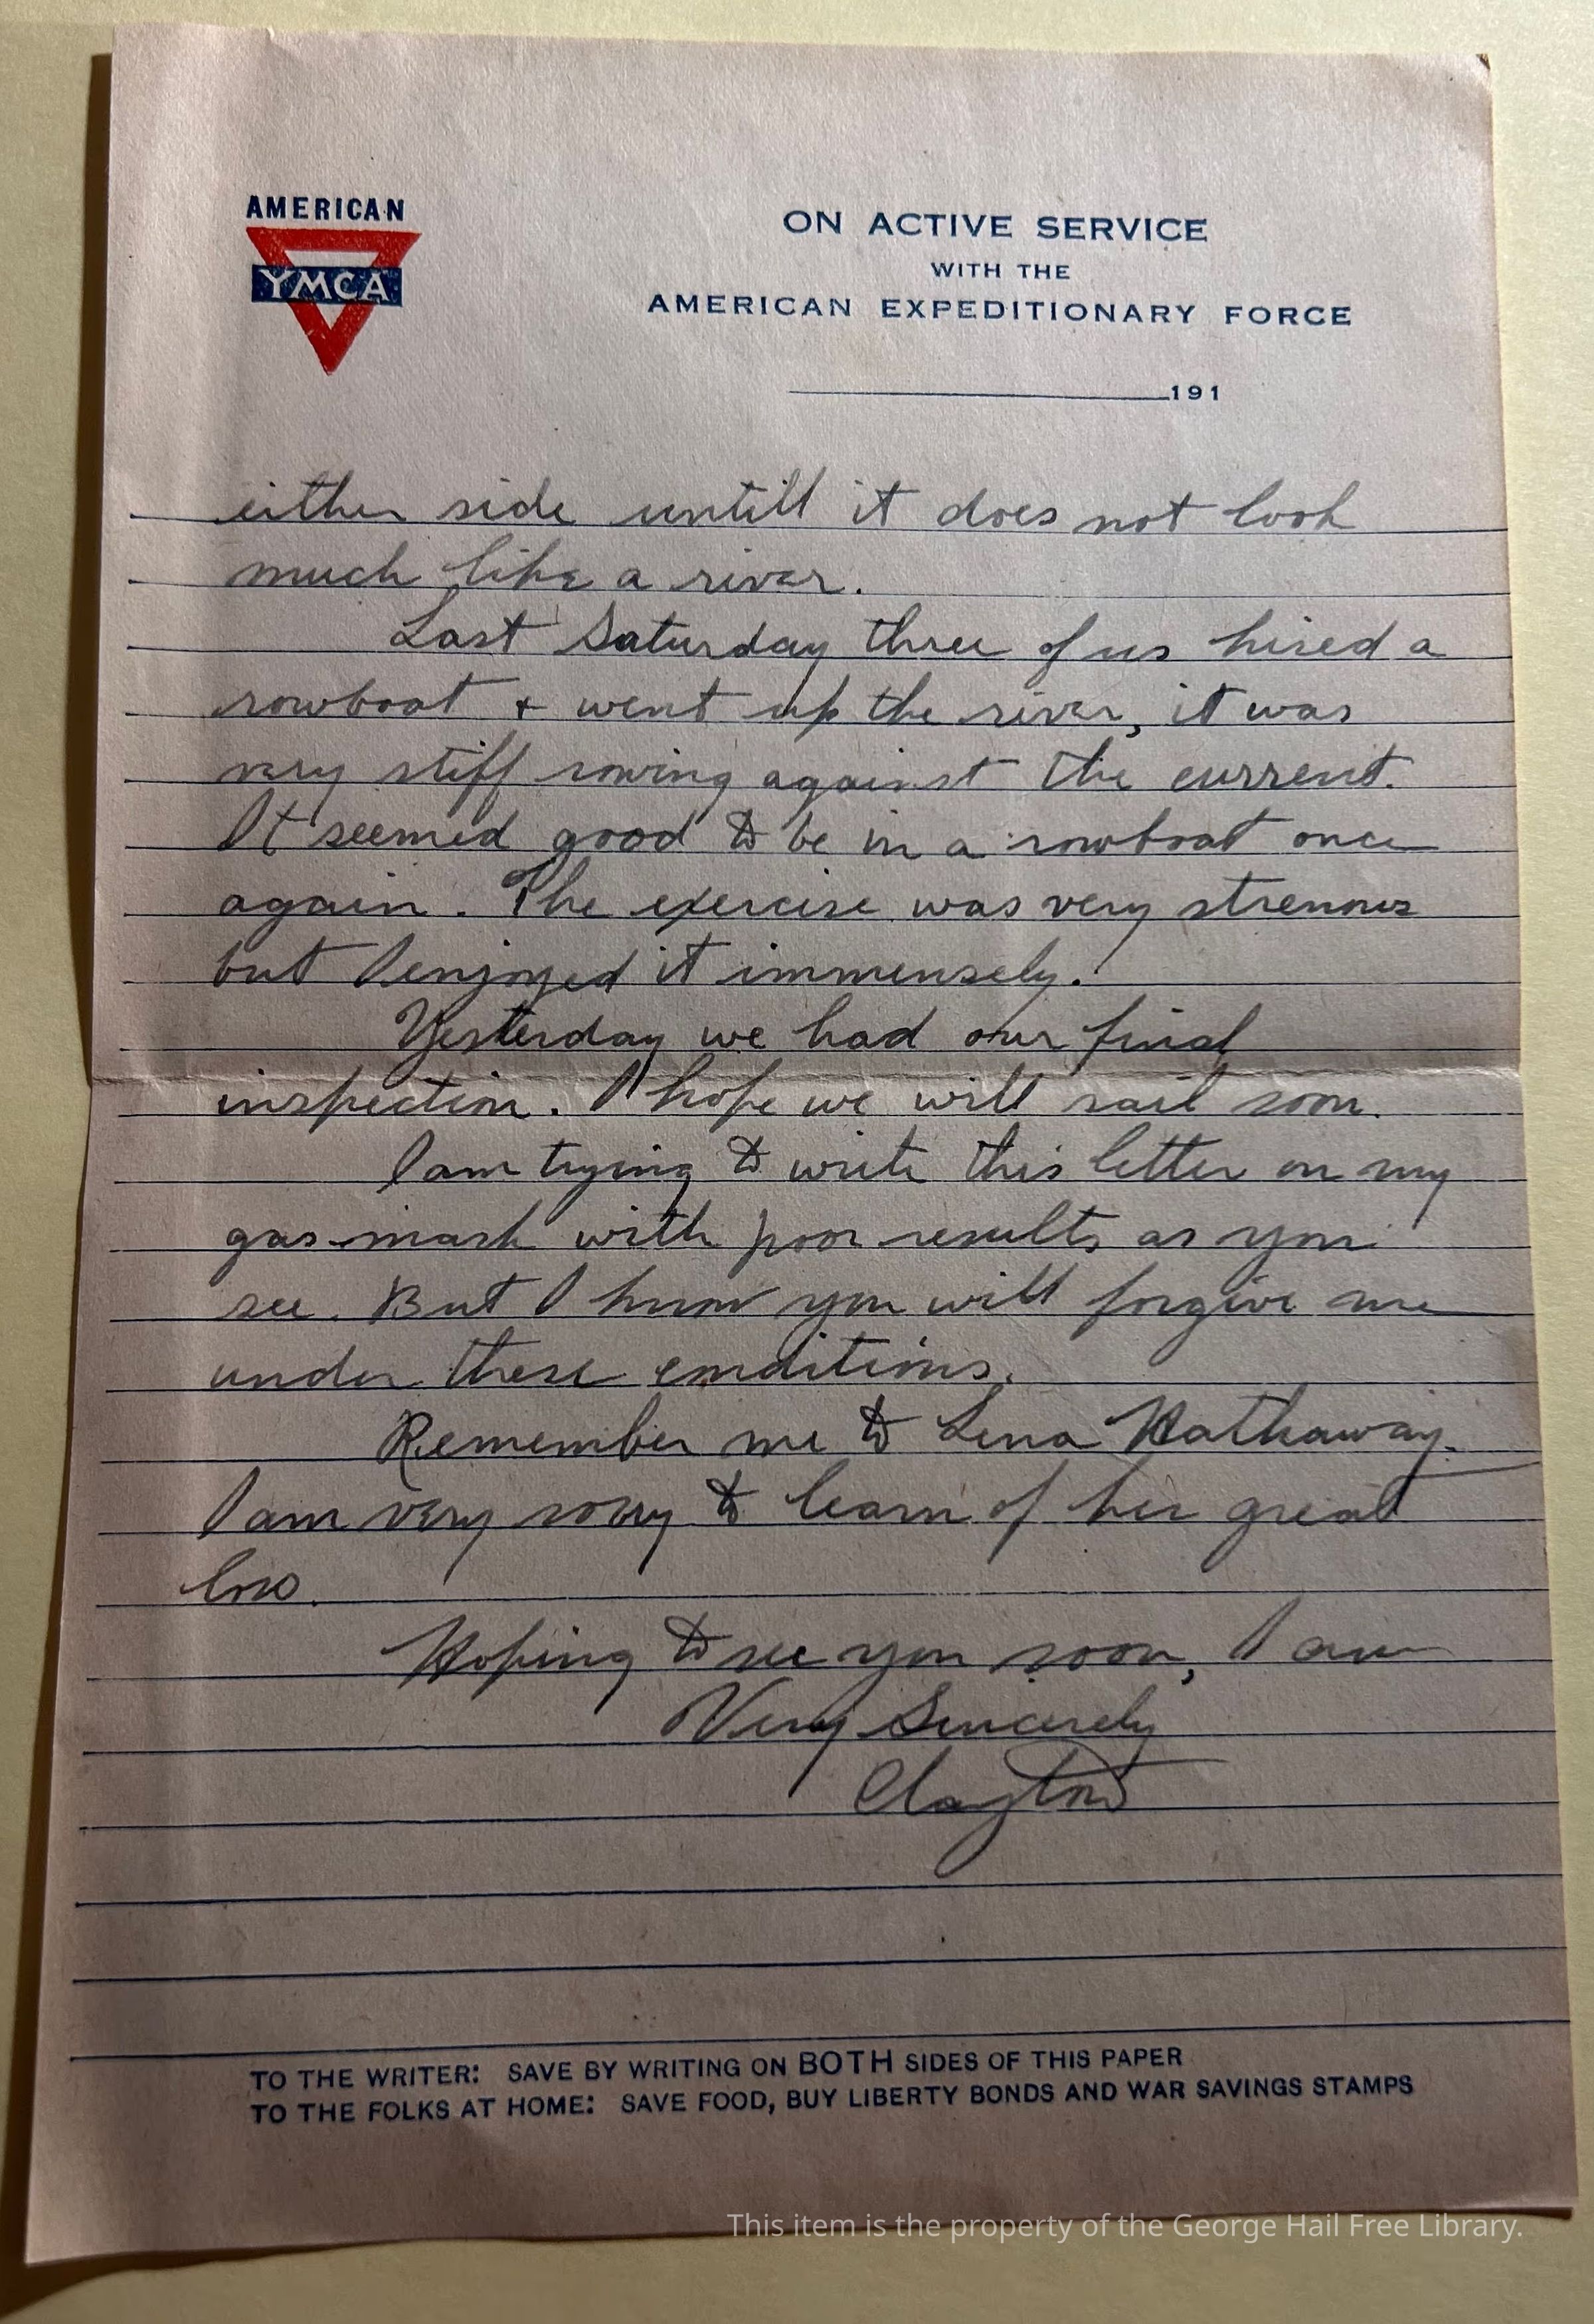 AMERICAN
YMCA
ON ACTIVE SERVICE
WITH THE
AMERICAN EXPEDITIONARY FORCE
191
either side untill it does not look
much like a river.
Last Saturday three of us hired a
rowboat + went up the river, it was
very stiff rowing against the current.
It seemed good to be in a rowboat once
again. The exercise was very strenous
but I enjoyed it immensely.
Yesterday we had our final
inspection. I hope we will sail soon.
I am trying to write this letter on my
gas-mask with poor results as you
see. But I know you will forgive me
under these conditions.
Remember me to Lena Hathaway.
I am very sorry to learn of her great
loss.
Hoping to see you soon, I am
Very Sincerely
Clayton
TO THE WRITER: SAVE BY WRITING ON BOTH SIDES OF THIS PAPER
TO THE FOLKS AT HOME: SAVE FOOD, BUY LIBERTY BONDS AND WAR SAVINGS STAMPS
This item is the property of the George Hail Free Library.